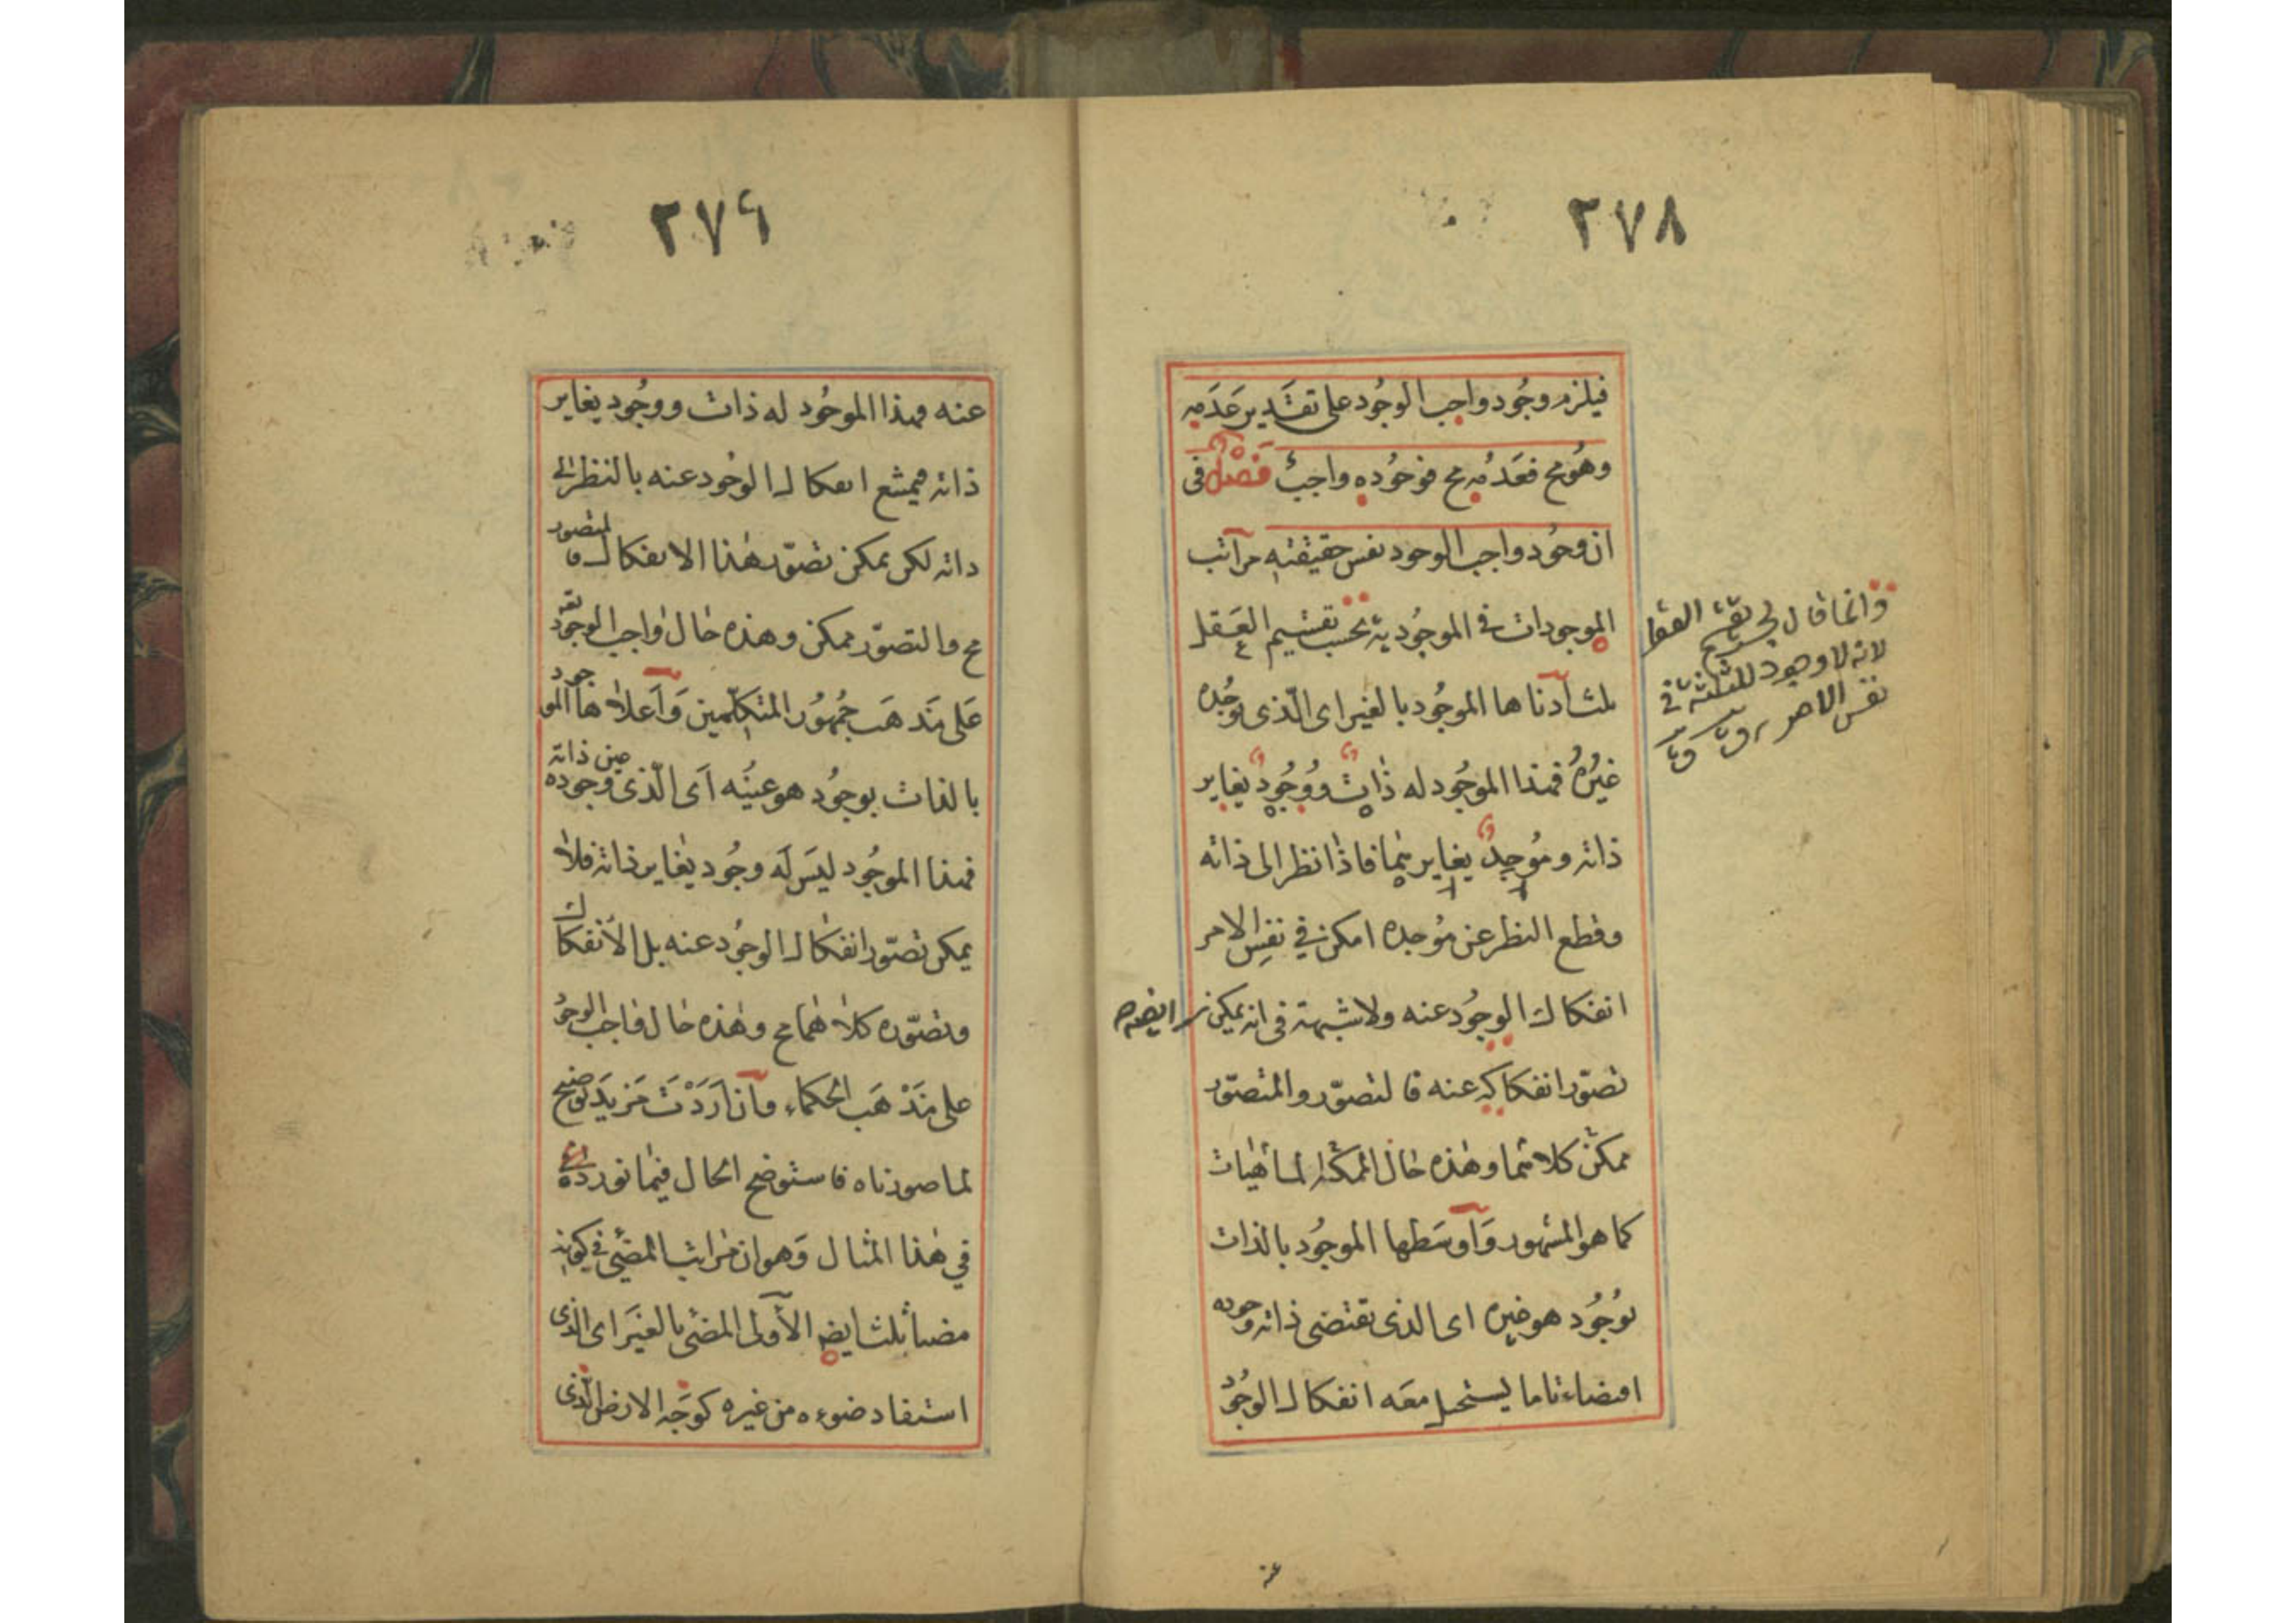 ٢٧٨
فيلزم وجود واجب الوجود على تقدير عدمه
وهو مح فعدمه مح فوجوده واجب فصل فى
ان وجود واجب الوجود نفس حقيقته مراتب
الموجودات فى الموجودية بحسب تقسيم العقل
ثلث ادناها الموجود بالغير اى الّذى يوجده
غيره فهذا الموجود له ذات ووجود يغاير
ذاته وموجد يغايرهما فاذا نظر الى ذاته
وقطع النظر عن موجده امكن فى نفس الامر
انفكاك الوجود عنه ولا شبهة فى انه يمكن ايضا
تصوّر انفكاكه عنه فالتصوّر والمتصوّر
ممكن كلاهما وهذه حال الماهيات
كما هو المشهور وَاوسَطها الموجود بالذات
بوجود هو غيره اى الذى تقتضى ذاته وجوده
اقتضاء تاما يستحيل معه انفكاك الوجود
وانما قال بحسب تقسيم العقل
لانه لا وجود للثلثة فى
نفس الامر
٢٧٩
عنه فهذا الموجود له ذات ووجود يغاير
ذاته فيمتنع انفكاك الوجود عنه بالنظر الى
ذاته لكن يمكن تصوّر هذا الانفكاك فالمتصور
مح والتصوّر ممكن وهذه حال واجب الوجود تعه
عَلى مَذهَب جُمهُور المتكلّمين وَاَعلاها الموجود
بالذات بوجود هو عينه اَى الّذى وجوده عين ذاته
فهذا الموجود ليس له وجود يغاير ذاته فلا
يمكن تصوّر انفكاك الوجود عنه بل الانفكاك
وتصوّره كلاهما مح وهذه حال واجب الوجود
على مَذْهَب الحكماء وان اَرَدْت مَزيدَ توضيح
لما صورناه فاستوضح الحال فيما نورده
في هذا المثال وَهو ان مراتب المضئ فى كونه
مضيأ ثلث ايضه الأولى المضئ بالغير اى الذى
استفاد ضوءه من غيره كوجه الارض الّذى